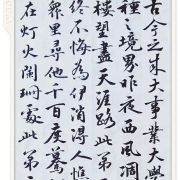 古今之成大事業大學
種之境界昨夜西風凋
樓望盡天涯路此第
終不悔為伊消得人憔
界眾里尋他千百度驀
在灯火闌珊處此第三